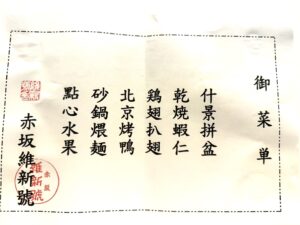 御菜単
什景拼盆
乾焼蝦仁
鶏翅扒翅
北京烤鴨
砂鍋煨麺
點心水果
赤坂維新號
赤坂
維新號